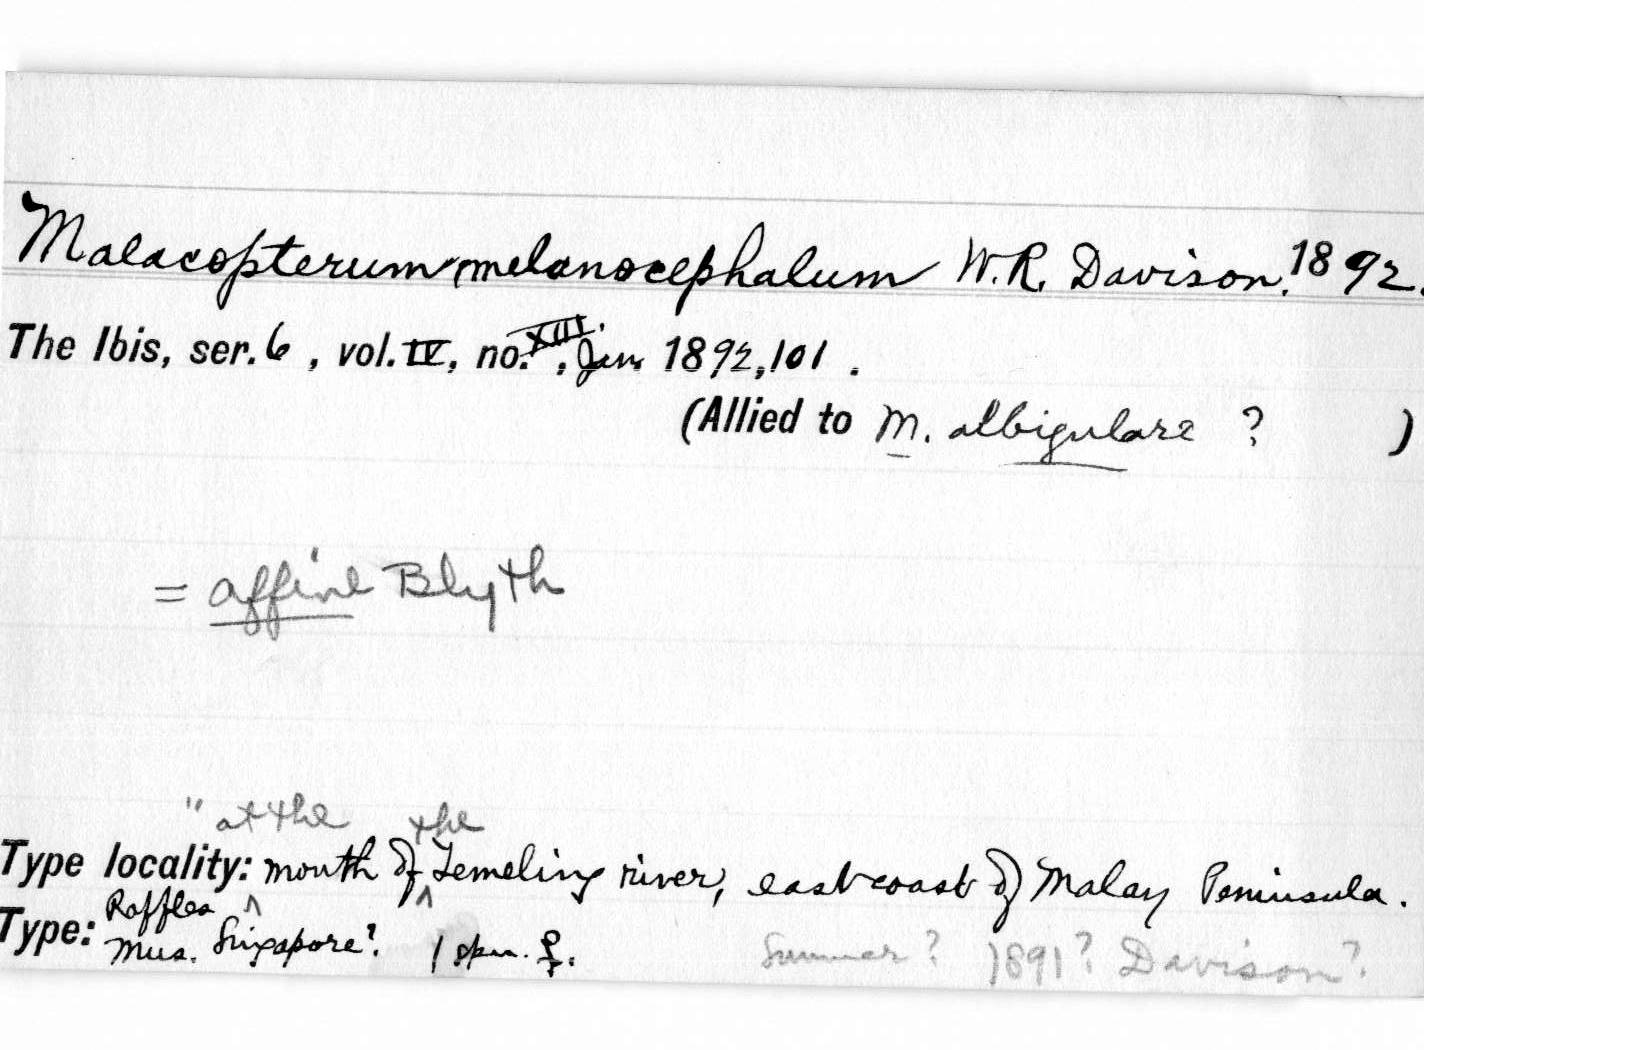 Malacopterum melanocephalum W.R. Davison. 1892.
The Ibis, ser. 6, vol. IV, no. XIII., Jan. 1892, 101.
(Allied to M. albigulare ? )
= affine Blyth
" at the the
Type locality: mouth of Temeling river, east coast of Malay Peninsula.
Raffles
Type: Mus. Singapore? 1 spm. ♀. Summer? 1891? Davison?